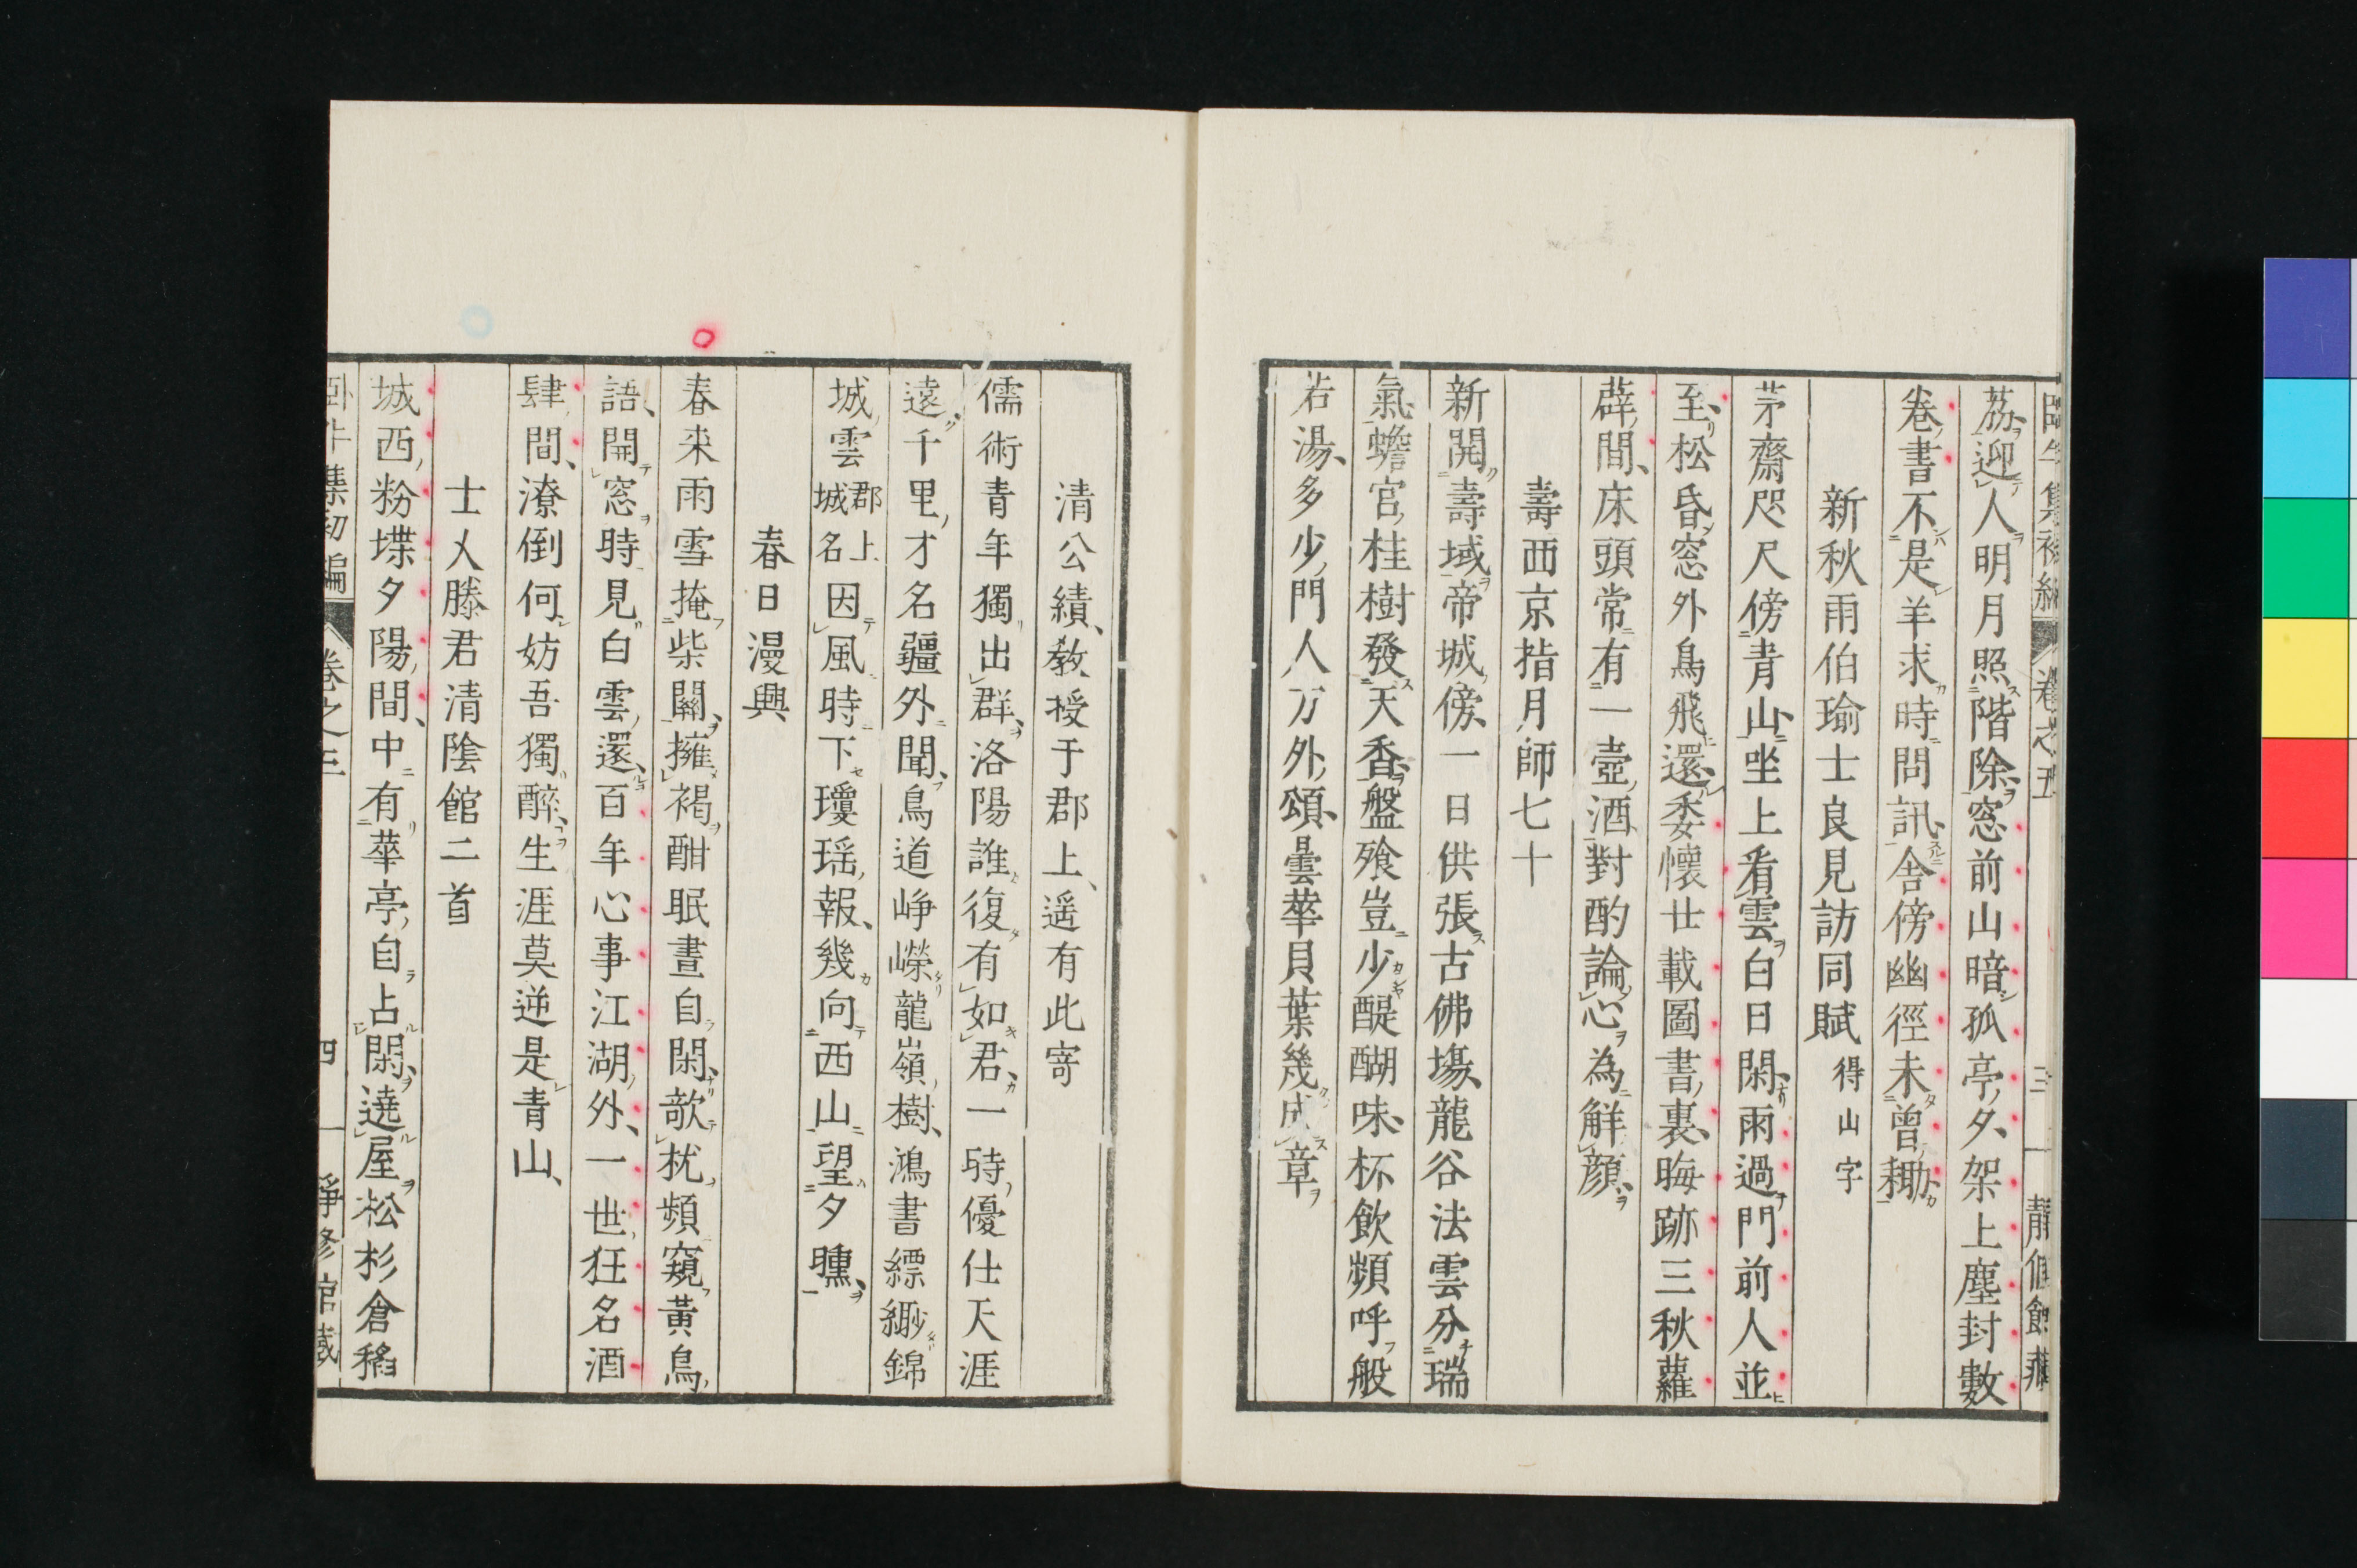 荔迎人明月照階除窓前山暗孤亭夕架上塵封數
卷書不是羊求時問訊舎傍幽徑未曾耡
新秋雨伯瑜士良見訪同賦得山字
茅齋咫尺傍青山坐上看雲白日閑雨過門前人並
至松昏窓外鳥飛還委懐廿載圖書裏晦跡三秋蘿
薜間床頭常有一壺酒對酌論心為解顔
壽西京指月師七十
新開壽域帝城傍一日供張古佛塲龍谷法雲分瑞
氣蟾宮桂樹發天香盤飱豈少醍醐味杯飲頻呼般
若湯多少門人方外頌曇華貝葉幾成章
清公績教授于郡上遥有此寄
儒術青年獨出群洛陽誰復有如君一時優仕天涯
遠千里才名疆外聞鳥道崢嶸龍嶺樹鴻書縹緲錦
城雲郡上城名因風時下瓊瑶報幾向西山望夕曛
春日漫興
春来雨雪掩柴關擁褐酣眠晝自閑欹枕頻窺黄鳥
語開窓時見白雲還百年心事江湖外一世狂名酒
肆間潦倒何妨吾獨醉生涯莫逆是青山
士人滕君清陰館二首
城西粉堞夕陽間中有華亭自占閑遶屋松杉倉
卷之三
四